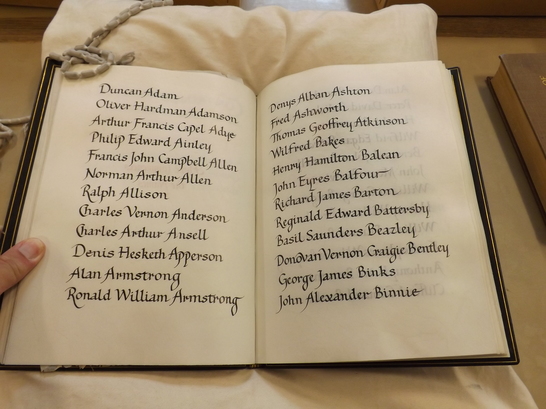 Duncan Adam
Oliver Hardman Adamson
Arthur Francis Capel Adye
Philip Edward Ainley
Francis John Campbell Allen
Norman Arthur Allen
Ralph Allison
Charles Vernon Anderson
Charles Arthur Ansell
Denis Hesketh Apperson
Alan Armstrong
Ronald William Armstrong
Denys Alban Ashton
Fred Ashworth
Thomas Geoffrey Atkinson
Wilfred Bakes
Henry Hamilton Balean
John Eyres Balfour
Richard James Barton
Reginald Edward Battersby
Basil Saunders Beazley
Donovan Vernon Graigie Bentley
George James Binks
John Alexander Binnie